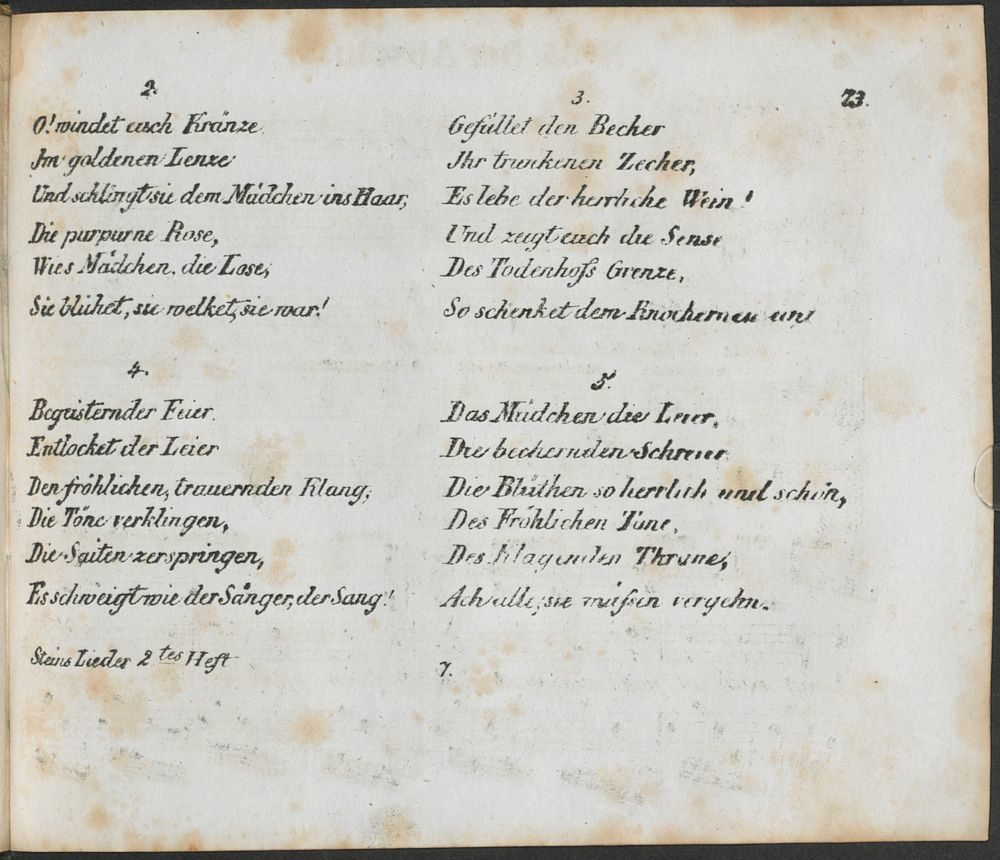 73.
2.
O! windet euch Kränze
Im goldenen Lenze
Und schlingt sie dem Mädchen ins Haar,
Die purpurne Rose,
Wies Mädchen. die Lose,
Sie blühet, sie welket, sie war!
3.
Gefüllet den Becher
Ihr trunkenen Zecher,
Es lebe der herrliche Wein!
Und zeigt euch die Sense
Des Todenhofs Grenze,
So schenket dem Knochernen ein!
4.
Begeisternder Feier
Entlocket der Leier
Den fröhlichen, trauernden Klang;
Die Töne verklingen,
Die Saiten zerspringen,
Es schweigt wie der Sånger, der Sang!
5.
Das Mädchen die Leier,
Die bechernden Schreier
Die Blüthen so herrlich und schön,
Des Fröhlichen Töne,
Des Klagenden Thräne,
Ach alle, sie müßen vergehn.
Steins Lieder 2tes Heft
7.